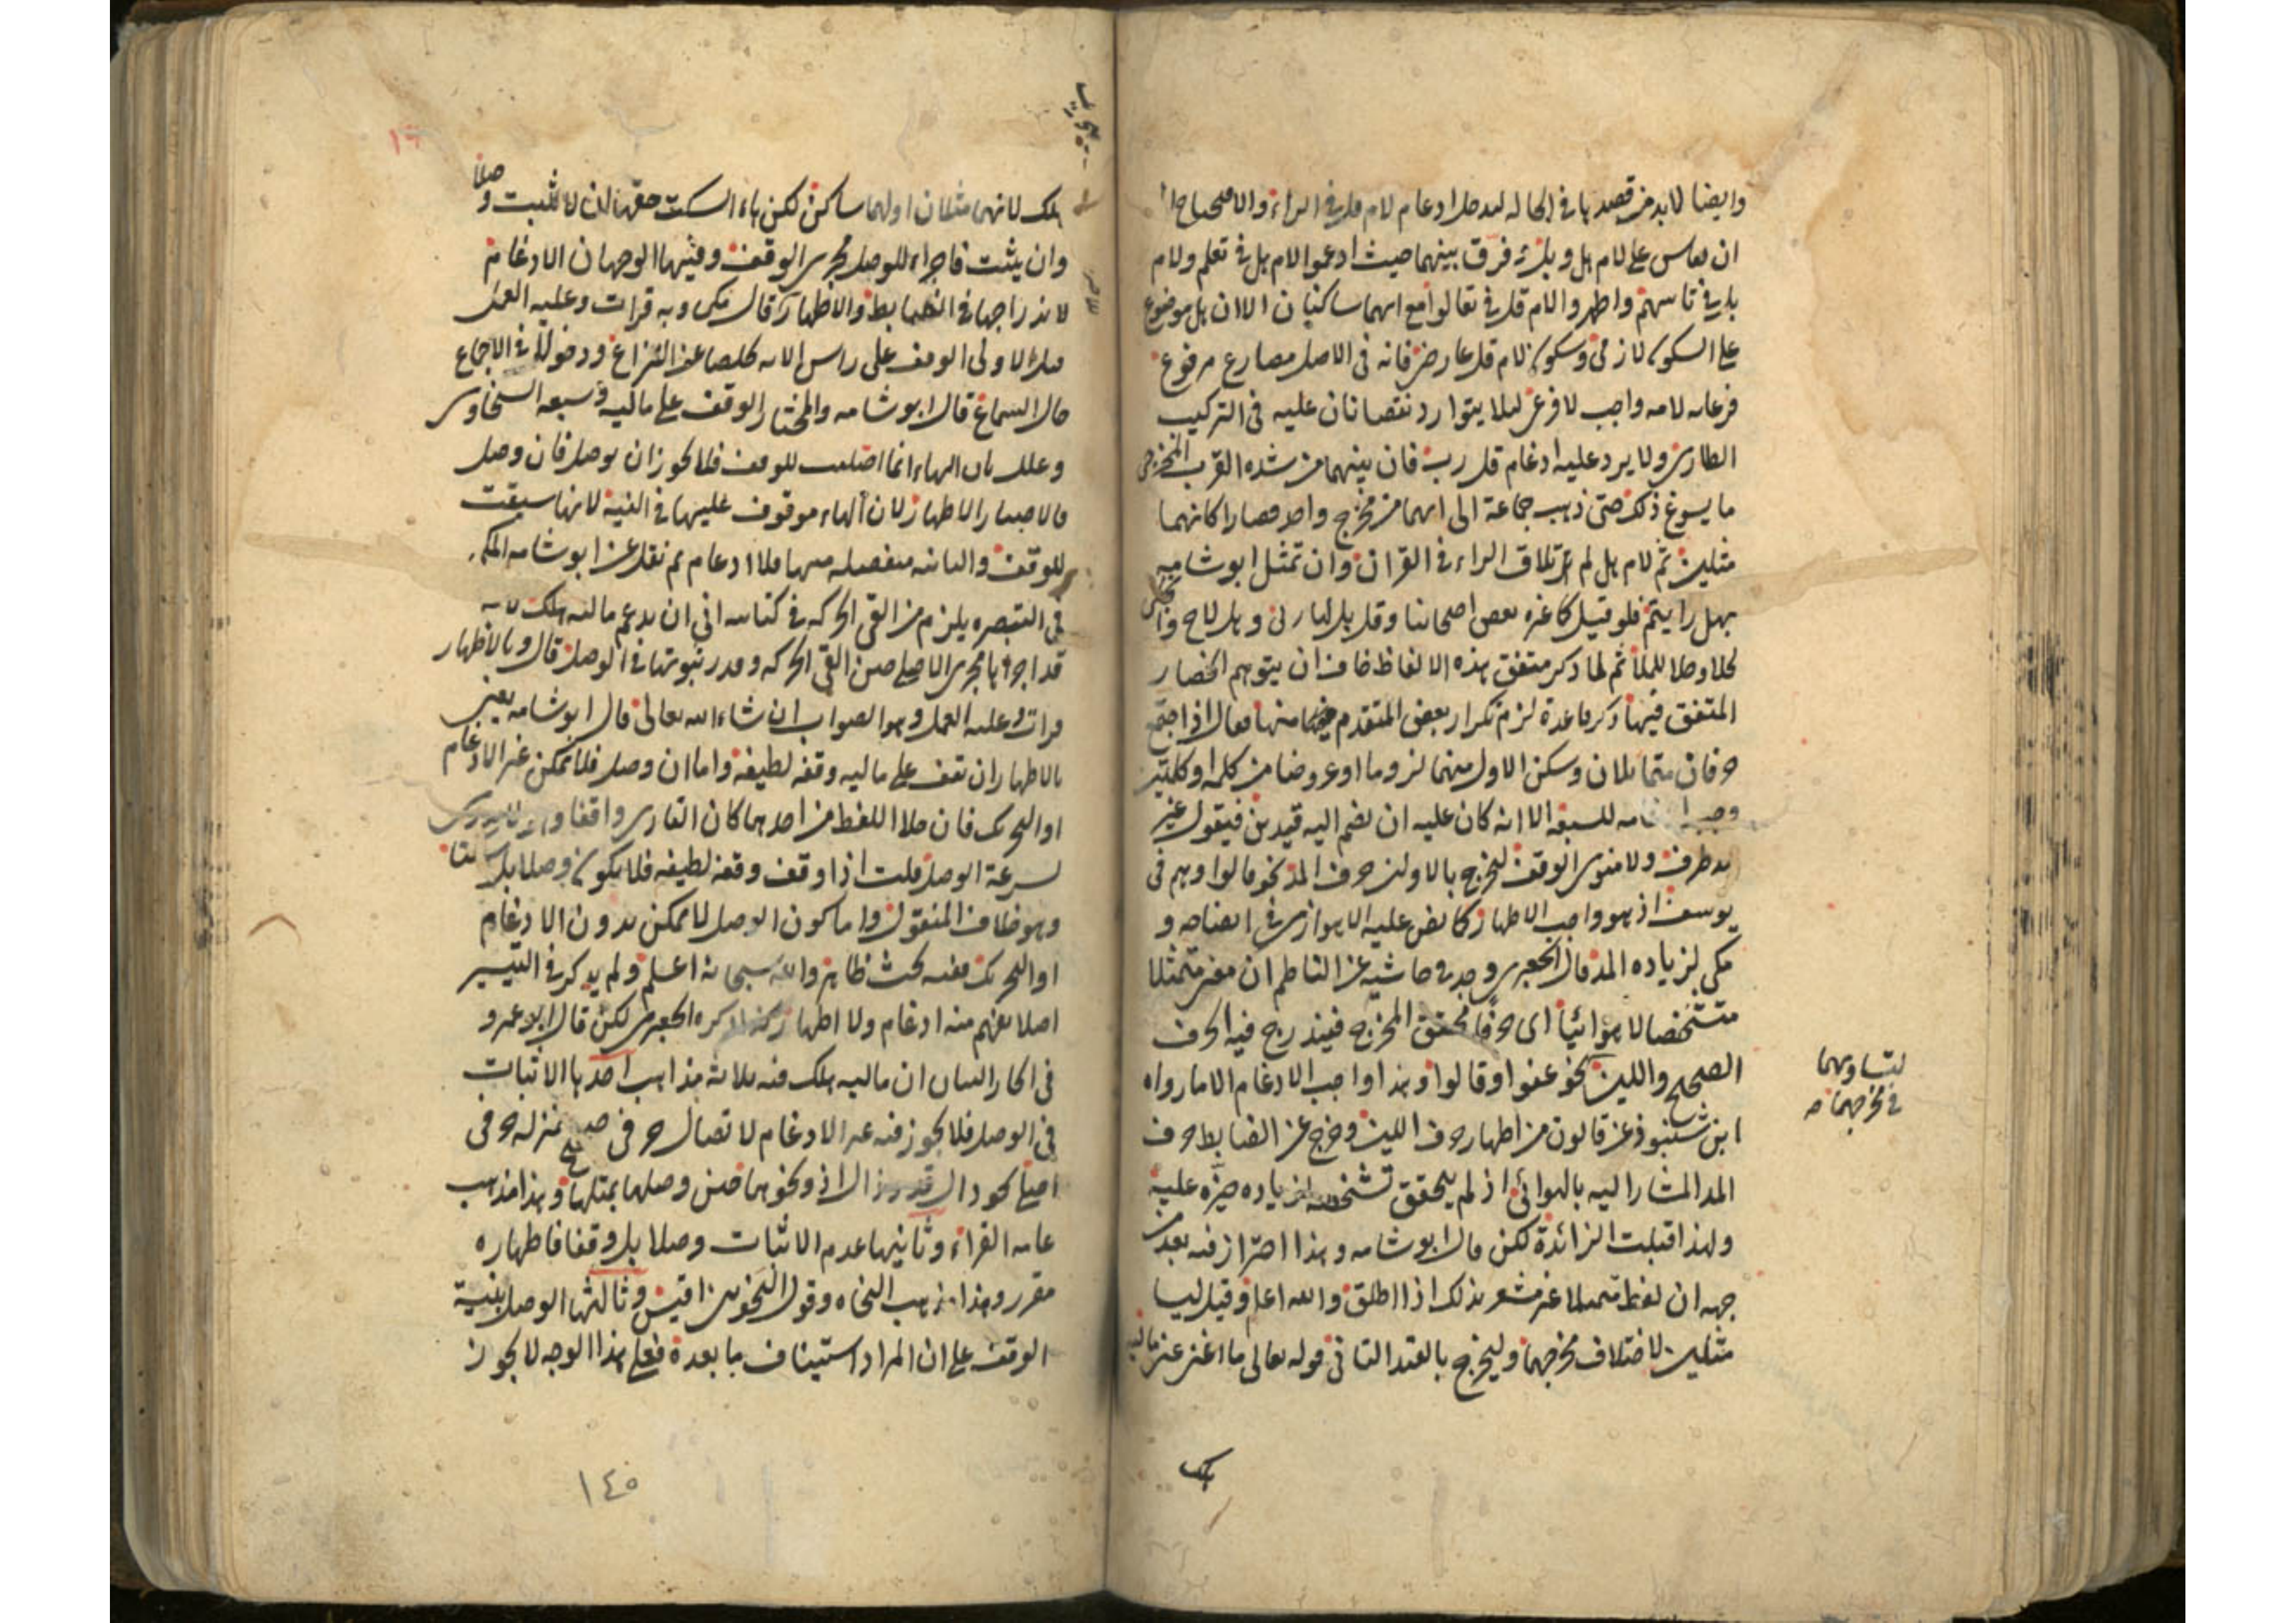 وايضا لابد من قصدها في الحالة ليدخل ادغام لام قل في الراء والا فيحتاج الى
ان يقاس على لام هل وبل ثم فرق بينهما حيث ادغموا لام بل في تعلم ولام
بل في تاسهم واظهروا لام قل في تعالوا مع انهما ساكنان الا ان بل موضوع
على السكون لازمي وسكون لام قل عارض فانه في الاصل مضارع مرفوع
فرعاية لامه واجب لا فرع لئلا يتوارد نقصانان عليه في التركيب
الطارى ولا يرد عليه ادغام قل رب فان بينهما من شدة القرب المخرجي
ما يسوغ ذلك حتى ذهب جماعة الى انهما من مخرج واحد فصارا كانهما
مثلين ثم لام هل لم تلاق الراء في القران وان تمثل ابو شامه
بهل رايتم فلو قيل كما غيره بعض اصحابنا وقل بل
ثم لما ذكر متفق هذه الالفاظ خاف ان يتوهم انحصار
المتفق فيها ذكر قاعدة لزم تكرار بعض المتقدم منها فقال اذا اجتمع
حرفان متماثلان وسكن الاول منهما لزوما او عروضا من كلمة او كلمتين
وجب ادغامه للسبعة الا انه كان عليه ان يضم اليه قيدين فيقول غير
مد طرف ولا منوى الوقف ليخرج بالاول حرف المد نحو قالوا وهم في
يوسف اذ هو واجب الاظهار كما نص عليه الاهوازى في ايضاحه و
مكي لزياده المد قال الجعبرى وجد في حاشية عن الناظم ان معنى متمثلا
متشخصا لا هوائيا اى حرفا محقق المخرج فيندرج فيه الحرف
الصحيح واللين نحو عفوا وقالوا وهذا واجب الادغام الا ما رواه
ابن شنبوذ عن قالون من اظهار حرف اللين وخرج عن الضابط حرف
المد المشار اليه بالهوائى اذ لم يتحقق تشخصه لزياده حيزه عليه
ولهذا قبلت الزائدة لكن قال ابو شامه وهذا احتراز فيه بعد من
جهة ان لفظ متمثلا غير مشعر بذلك اذا اطلق والله اعلم وقيل ليسا
مثلين لاختلاف مخرجهما وليخرج بالقيد الثاني قوله تعالى ما اغنى عني ماليه
لتساويهما
في مخرجهما صح
هلك
هلك لانهما مثلان اولهما ساكن لكن هاء السكت حقها ان لا تثبت وصلا
وان يثبت فاجراء للوصل مجرى الوقف وفيها الوجهان الادغام
لاندراجها في الضابط والاظهار قال مكي وبه قرات وعليه العمل
قلت الاولى الوقف على راس الاية تخلصا عن النزاع ودخولا في الاجماع
حال السماع قال ابو شامه والمختار الوقف على ماليه وسبقه السخاوى
وعلل بان الهاء انما اجتلبت للوقف فلا يجوز ان يوصل فان وصل
فالاختيار الاظهار لان الهاء موقوف عليها في النية لانها سيقت
للوقف والثانية منفصلة منها فلا ادغام ثم نقل عن ابو شامه المكي
في التبصره يلزم من القى الحركه في كتابيه اني ان يدغم ماليه هلك لانه
قد اجراها مجرى الاصلي حين القى الحركه وقدر ثبوتها في الوصل قال وبالاظهار
قرات وعليه العمل وهو الصواب ان شاء الله تعالى قال ابو شامه يعني
بالاظهار ان تقف على ماليه وقفة لطيفة واما ان وصل فلا يمكن غير الادغام
او التحريك فان خلا اللفظ من احدهما كان القارى واقفا وهو لا يدرى
لسرعة الوصل قلت اذا وقف وقفة لطيفه فلا يكون وصلا بل وقفا
وهو خلاف المنقول واما كون الوصل لا يمكن بدون الادغام
او التحريك ففيه بحث ظاهر والله سبحانه اعلم ولم يذكر في التيسير
اصلا يفهم منه ادغام ولا اظهار ذكره الجعبرى لكن قال ابو عمرو
في الجار البيان ان ماليه هلك فيه ثلاثة مذاهب احدها الاثبات
في الوصل فلا يجوز فيه غير الادغام لاتصال حرفي صح بمنزلة حرفي
ونحوهما حين وصلها بمثلها وهذا مذهب
عامه القراء وثانيها عدم الاثبات وصلا بل وقفا فاظهاره
مقرر وهذا مذهب النحاه وقول النحويين اقيس وثالثها الوصل بنية
الوقف على ان المراد استيناف ما بعده فعلى هذا الوجه لا يجوز
١٤٥